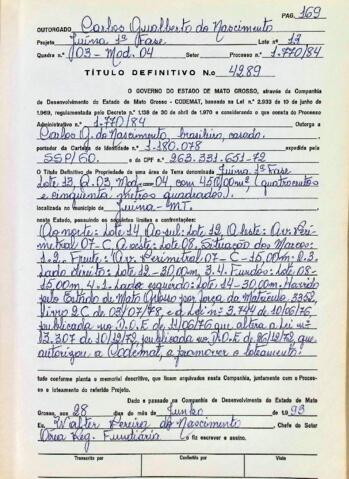 PAG. 169
OUTORGADO Carlos Gualberto do Nascimento
Projeto Juína 1ª Fase Lote n° 13
Quadra n° 03 - Mod. 04 Setor Processo n° 1.770/84
TÍTULO DEFINITIVO N.o 4289
O GOVERNO DO ESTADO DE MATO GROSSO, através da Companhia
de Desenvolvimento do Estado de Mato Grosso - CODEMAT, baseado na Lei n.° 2.933 de 10 de junho de
1969, regulamentada pelo Decreto N.° 1.138 de 30 de abril de 1970 e considerando o que consta do Processo
Administrativo n.° 1.770/84 Outorga a
Carlos G. do Nascimento, brasileiro, casado.
portador da Carteira de Identidade n.° 1.180.078 expedida pela
SSP/GO. e do CPF n.° 263.331.651-72
O Título Definitivo de Propriedade de uma área de terra denominada Juína 1ª Fase
Lote 13, Q. 03, Mod. 04, com 450,00m² (quatrocentos e
cinquenta metros quadrados).
localizada no município de Juína - MT.
neste Estado, possuindo os seguintes limites e confrontações:
Ao norte: Lote 14, Ao sul: Lote 12, A leste: Av. Peri-
metral 07-C, A oeste: Lote 08, Situação dos Marcos:
1.2 - Frente: Av. Perimetral 07-C - 15,00m. 2.3
Lado direito: Lote 12 - 30,00m, 3.4. Fundos: Lote 08 -
15,00m, 4.1. Lado esquerdo: Lote 14 - 30,00m. Havido
pelo Estado de Mato Grosso por força da Matrícula 3352,
livro 2C de 03/07/78, e a Lei n° 3.744 de 10/06/76,
publicada no D.O.E de 11/06/76 que altera a lei n°
3.307 de 10/12/72, publicada no D.O.E de 86/12/72, que
autorizou a Codemat, a promover o loteamento.
tudo conforme planta e memorial descritivo, que ficam arquivados nesta Companhia, juntamente com o Proces-
so e loteamento do referido Projeto.
Dado e passado na Companhia de Desenvolvimento do Estado de Mato
Grosso, aos 28 dias do mês de Junho de 1.993
Eu, Walter Pereira do Nascimento Chefe do Setor
Área Reg. Fundiária o fiz escrever e assino.
Transcrito por Conferido por Visto